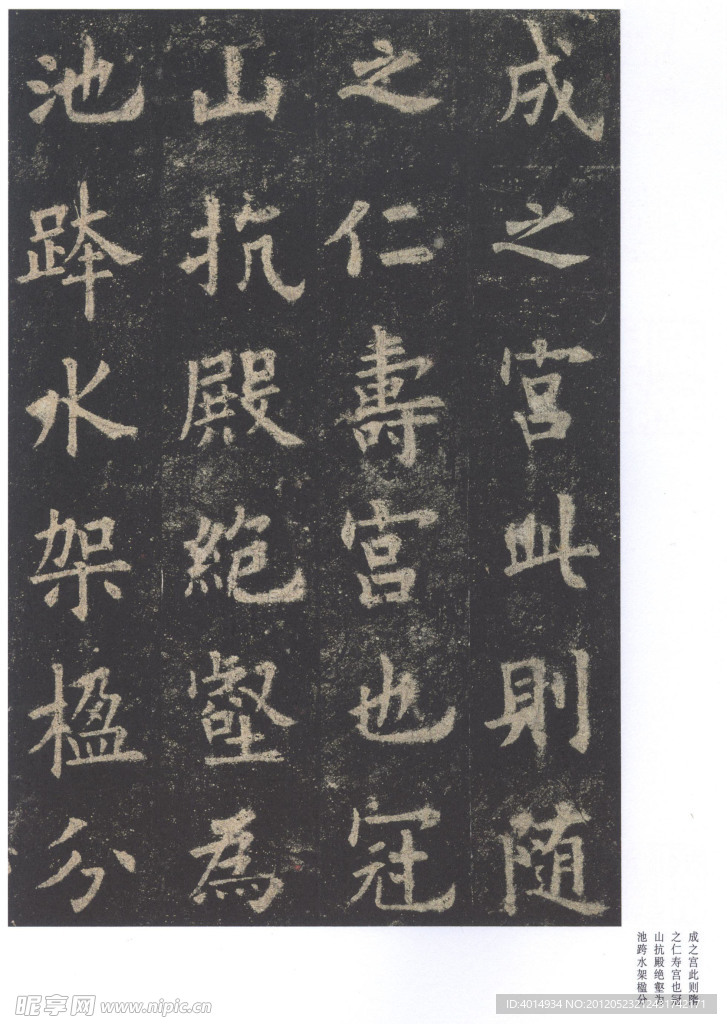 成之宫此則随
之仁壽宫也冠
山抗殿絶壑為
池跨水架楹分
成之宫此则隋
之仁寿宫也冠
山抗殿绝壑为
池跨水架楹分
昵享网 www.nipic.cn
ID:4014934 NO:20120523212431742171